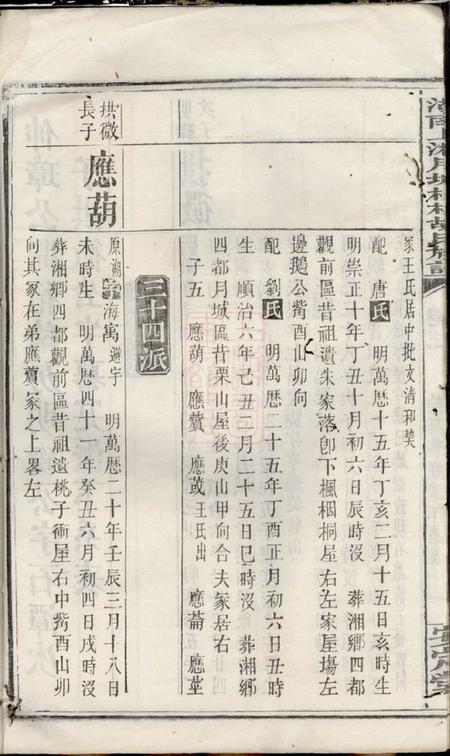 家王氏居中批文清和契
配 唐氏 明萬曆十五年丁亥二月十五日亥時生
明崇正十年丁丑十月初六日辰時沒 葬湘鄉四都
觀前區昔祖遺朱家落卽下楓梱桐屋右左家屋塲左
邊鵝公觜酉山卯向
配 劉氏 明萬曆二十五年丁酉正月初六日丑時
生 順治六年己丑三月二十五日巳時沒 葬湘鄉
四都月城區昔栗山屋後庚山甲向合夫冢居右
子五 應葫 應蕢 應荗王氏出 應崙 應莖
三十四派
拱微長子
應葫
原湖字海寓遯宇 明萬曆二十年壬辰三月十八日
未時生 明萬曆四十一年癸丑六月初四日戌時沒
葬湘鄉四都觀前區昔祖遺桃子衝屋右中觜酉山卯
向其冢在弟應蕢冢之上畧左